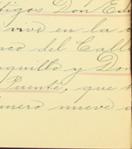 tigos Don Ed
vive en la c
rco del Call
aquillo y Don
Puente, que
mero nueve a